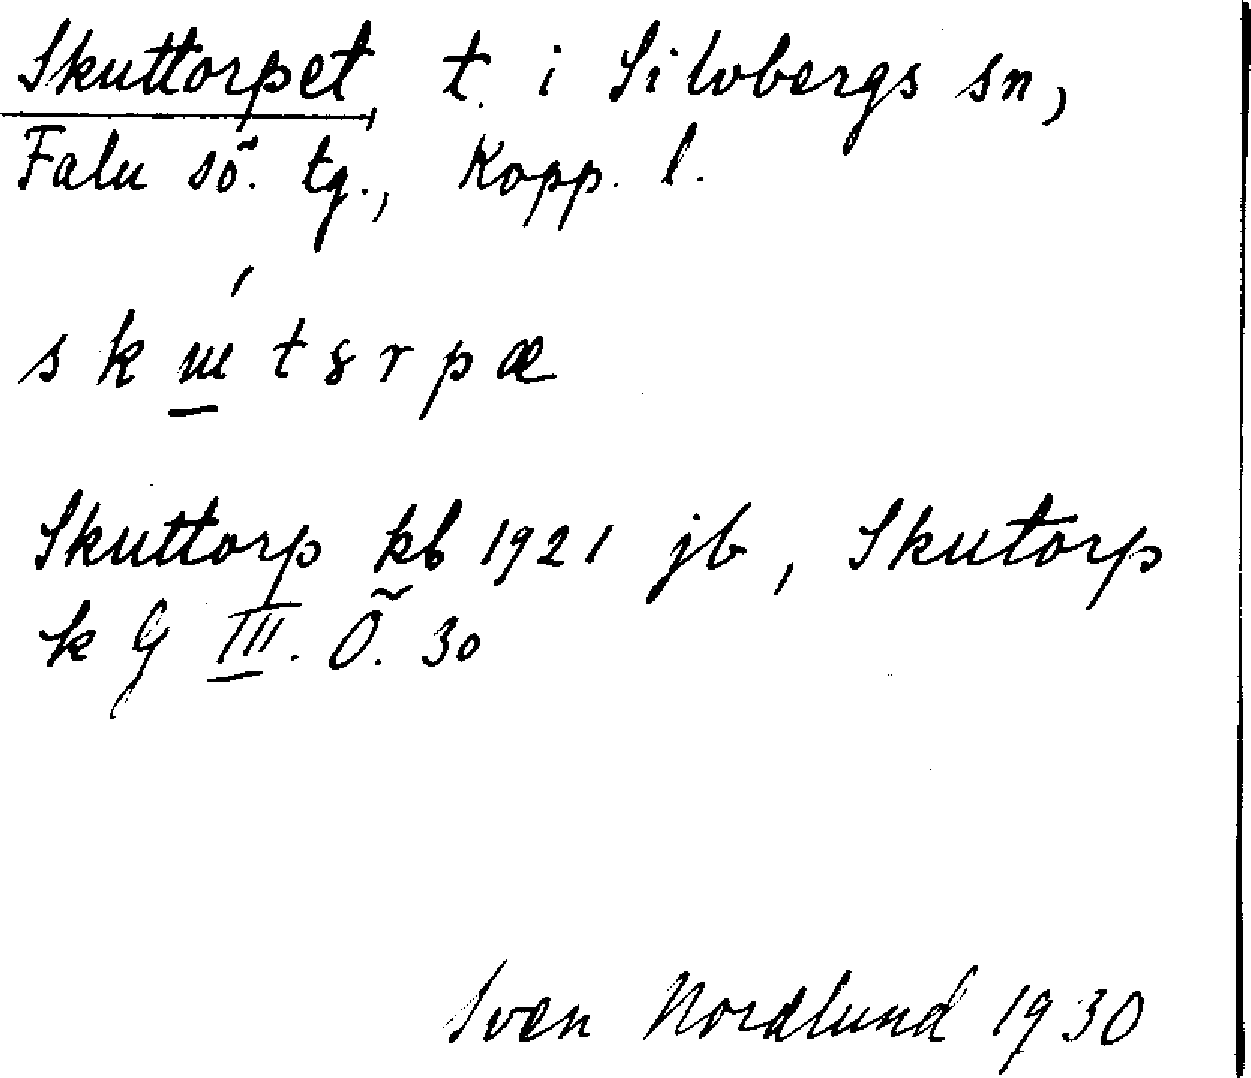 Skuttorpet, t. i Silvbergs sn,
Falu sö. tg., Kopp. l.
Skuttorp kb 1921 jb, Skutorp
k G III. Ö. 30
Sven Nordlund 1930